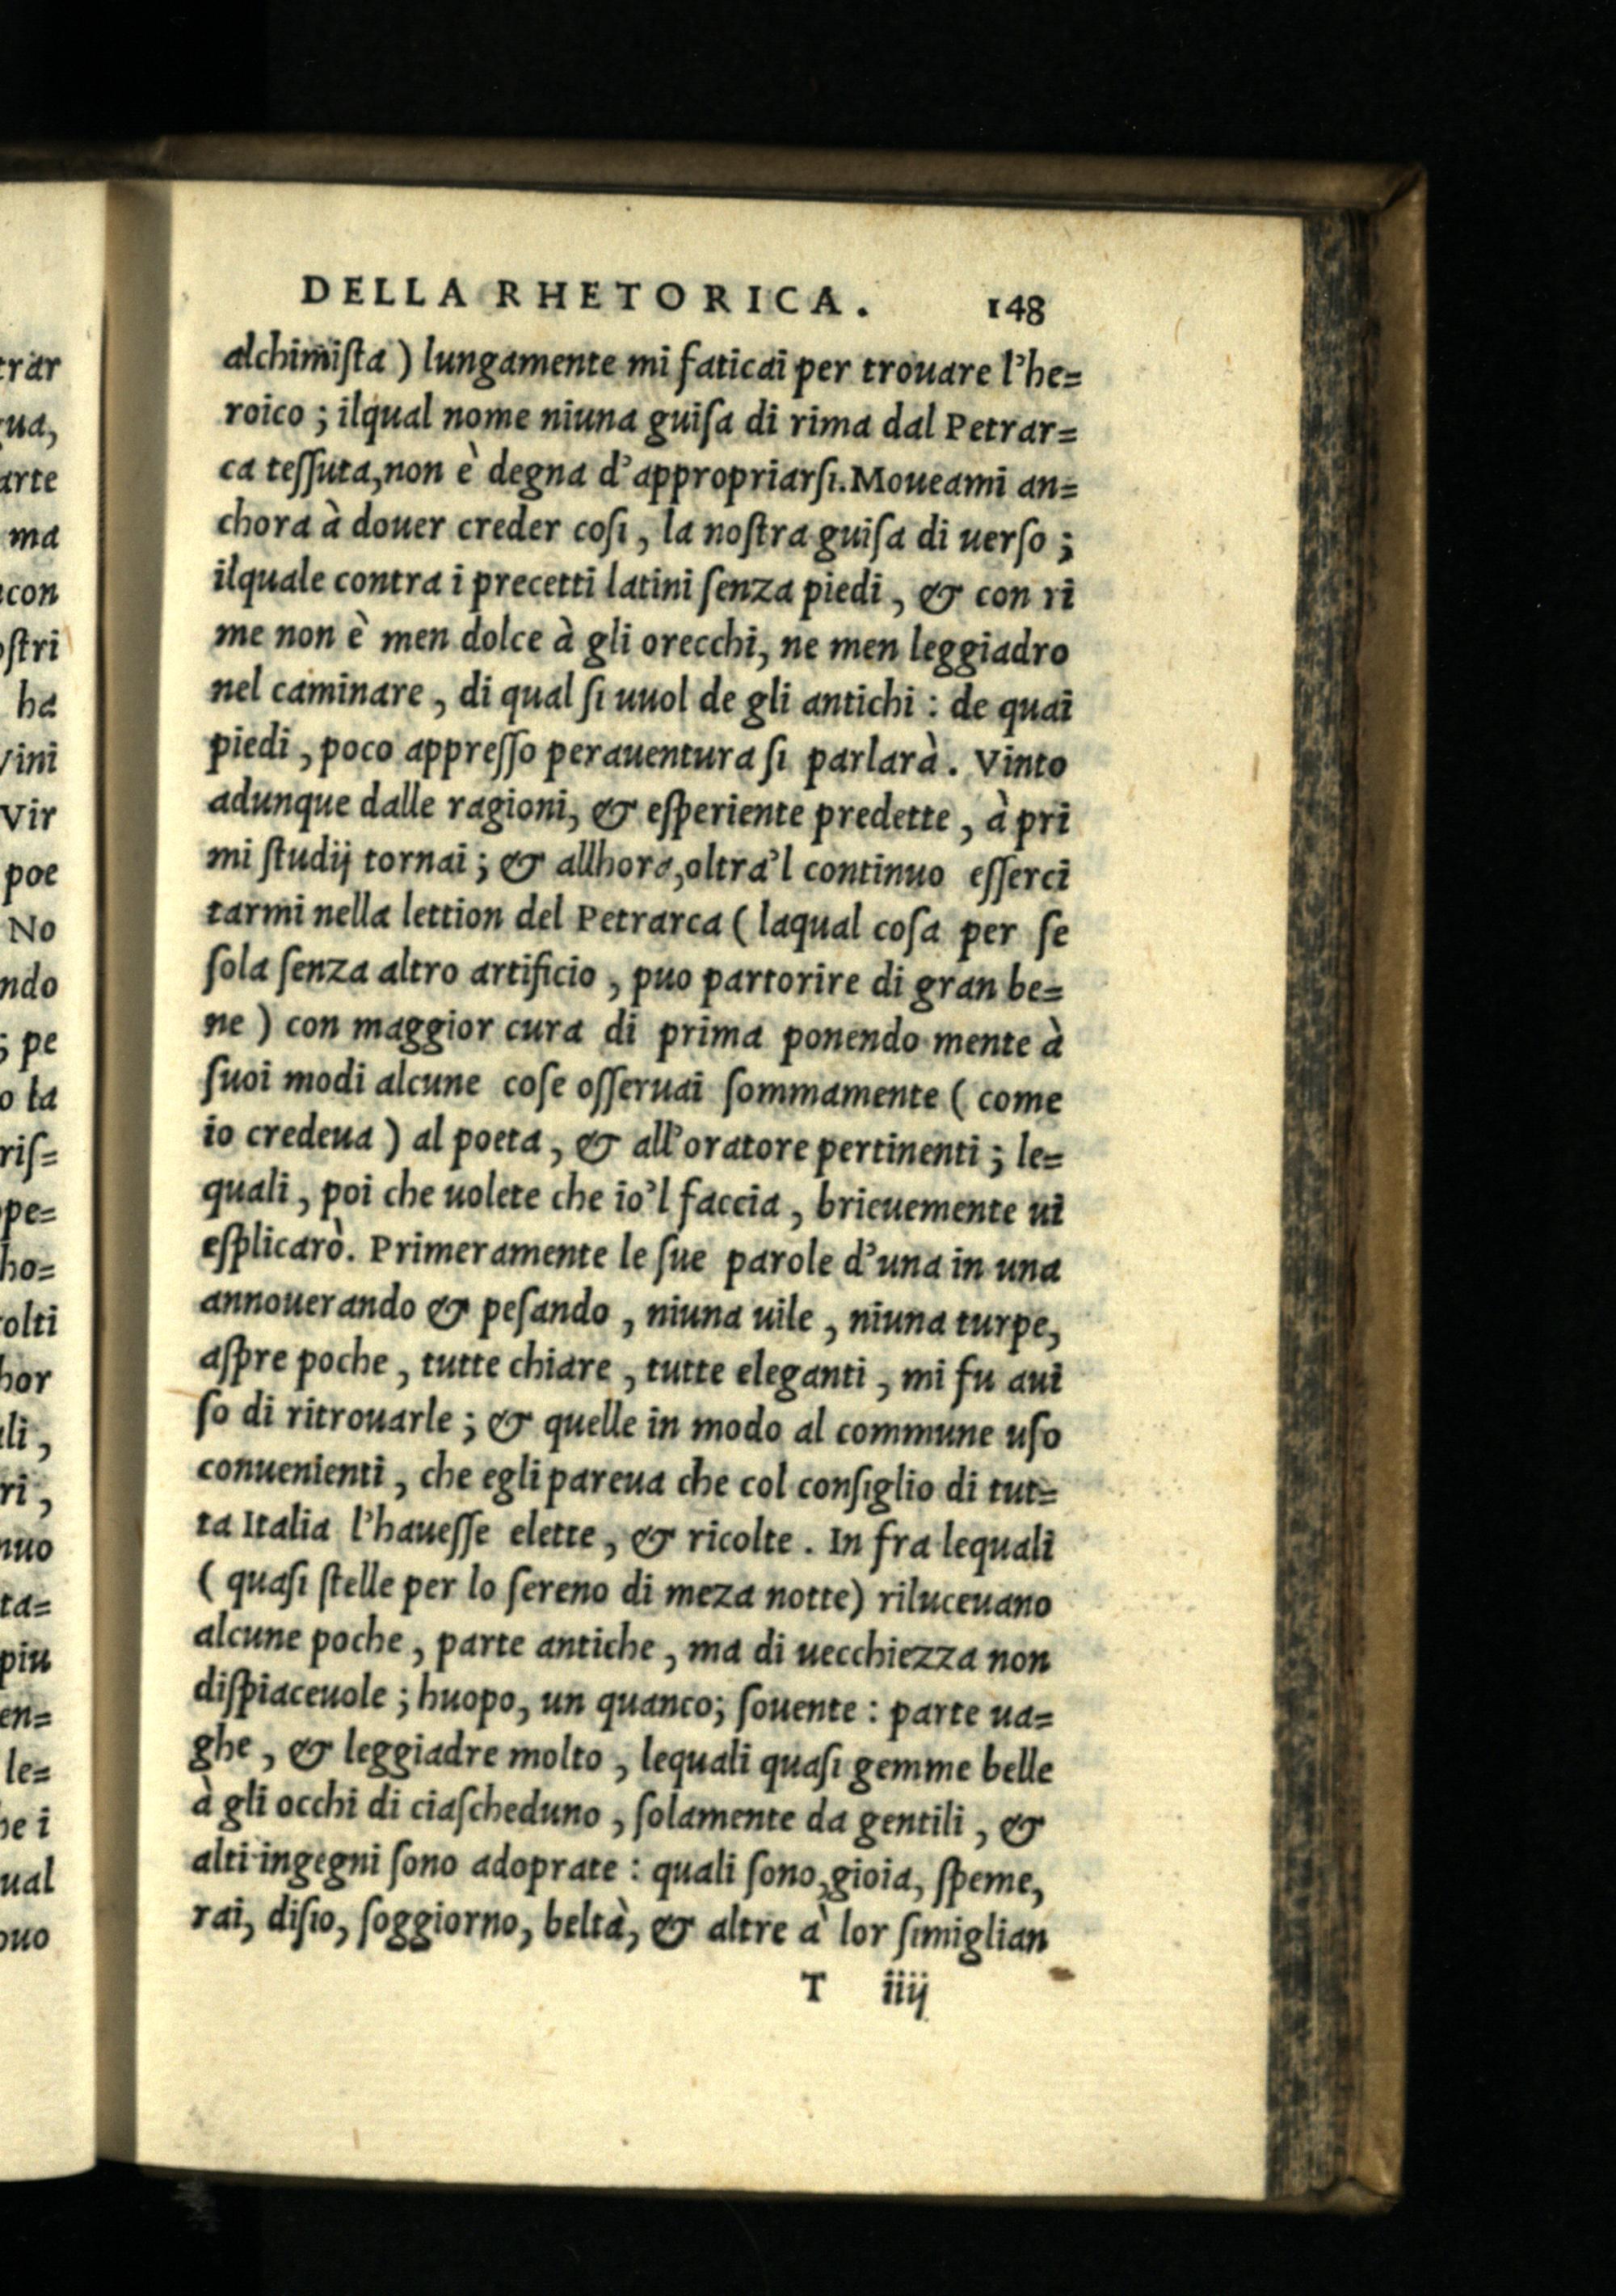 DELLA RHETORICA. 148
alchimiſta) lungamente mi faticai per trouare l'he=
roico; ilqual nome niuna guiſa di rima dal Petrar=
ca teſſuta, non è degna d'appropriarſi. Moueami an=
chora à douer creder coſi, la noſtra guiſa di uerſo;
ilquale contra i precetti latini ſenza piedi, & con ri
me non è men dolce à gli orecchi, ne men leggiadro
nel caminare, di qual ſi uuol de gli antichi: de quai
piedi, poco appreſſo perauentura ſi parlarà. Vinto
adunque dalle ragioni, & eſperiente predette, à pri
mi ſtudij tornai; & allhora, oltra'l continuo eſſerci
tarmi nella lettion del Petrarca (laqual coſa per ſe
ſola ſenza altro artificio, puo partorire di gran be=
ne) con maggior cura di prima ponendo mente à
ſuoi modi alcune coſe oſſeruai ſommamente (come
io credeua) al poeta, & all'oratore pertinenti; le=
quali, poi che uolete che io'l faccia, brieuemente ui
eſplicarò. Primeramente le ſue parole d'una in una
annouerando & peſando, niuna uile, niuna turpe,
aſpre poche, tutte chiare, tutte eleganti, mi fu aui
ſo di ritrouarle; & quelle in modo al commune uſo
conuenienti, che egli pareua che col conſiglio di tut=
ta Italia l'haueſſe elette, & ricolte. In fra lequali
(quaſi ſtelle per lo ſereno di meza notte) riluceuano
alcune poche, parte antiche, ma di uecchiezza non
diſpiaceuole; huopo, un quanco; ſouente: parte ua=
ghe, & leggiadre molto, lequali quaſi gemme belle
à gli occhi di ciaſcheduno, ſolamente da gentili, &
alti ingegni ſono adoprate: quali ſono, gioia, ſpeme,
rai, diſio, ſoggiorno, beltà, & altre à lor ſimiglian
T iiij